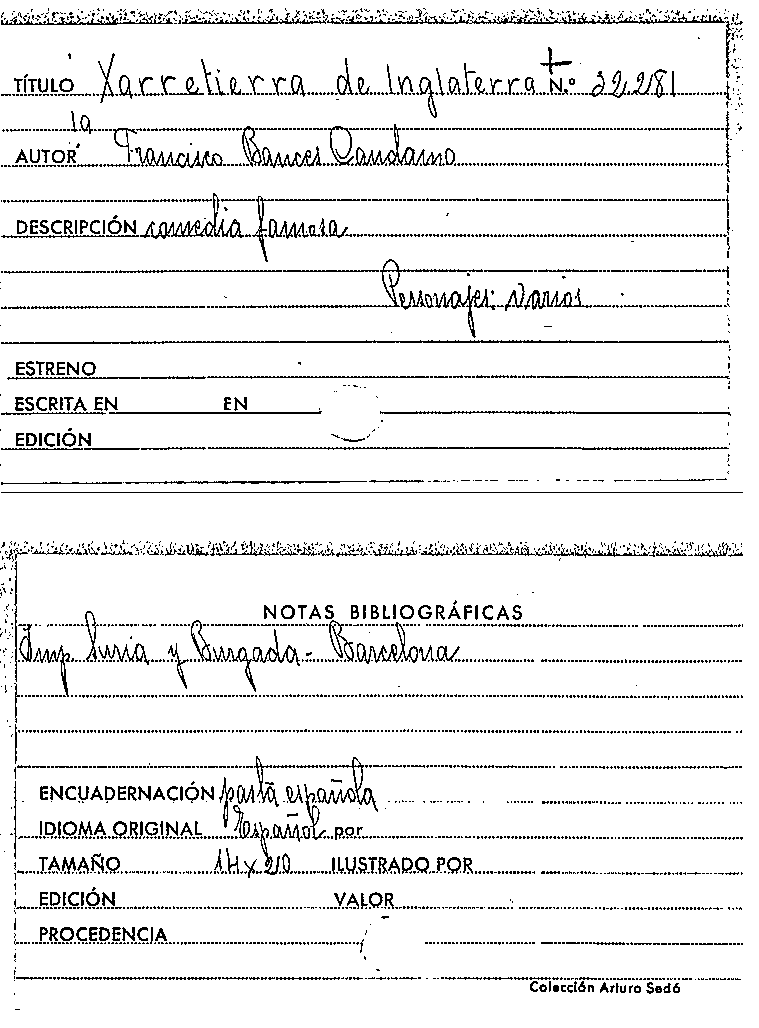 TÍTULO Xarretierra de Inglaterra + N.º 32,281
la
AUTOR Francisco Bances Candamo
DESCRIPCIÓN comedia famosa
Personajes: varios
ESTRENO
ESCRITA EN EN
EDICIÓN
NOTAS BIBLIOGRÁFICAS
Imp Suria y Burgada - Barcelona
ENCUADERNACIÓN pasta española
IDIOMA ORIGINAL Español por
TAMAÑO 14 x 20 ILUSTRADO POR
EDICIÓN VALOR
PROCEDENCIA
Colección Arturo Sedó